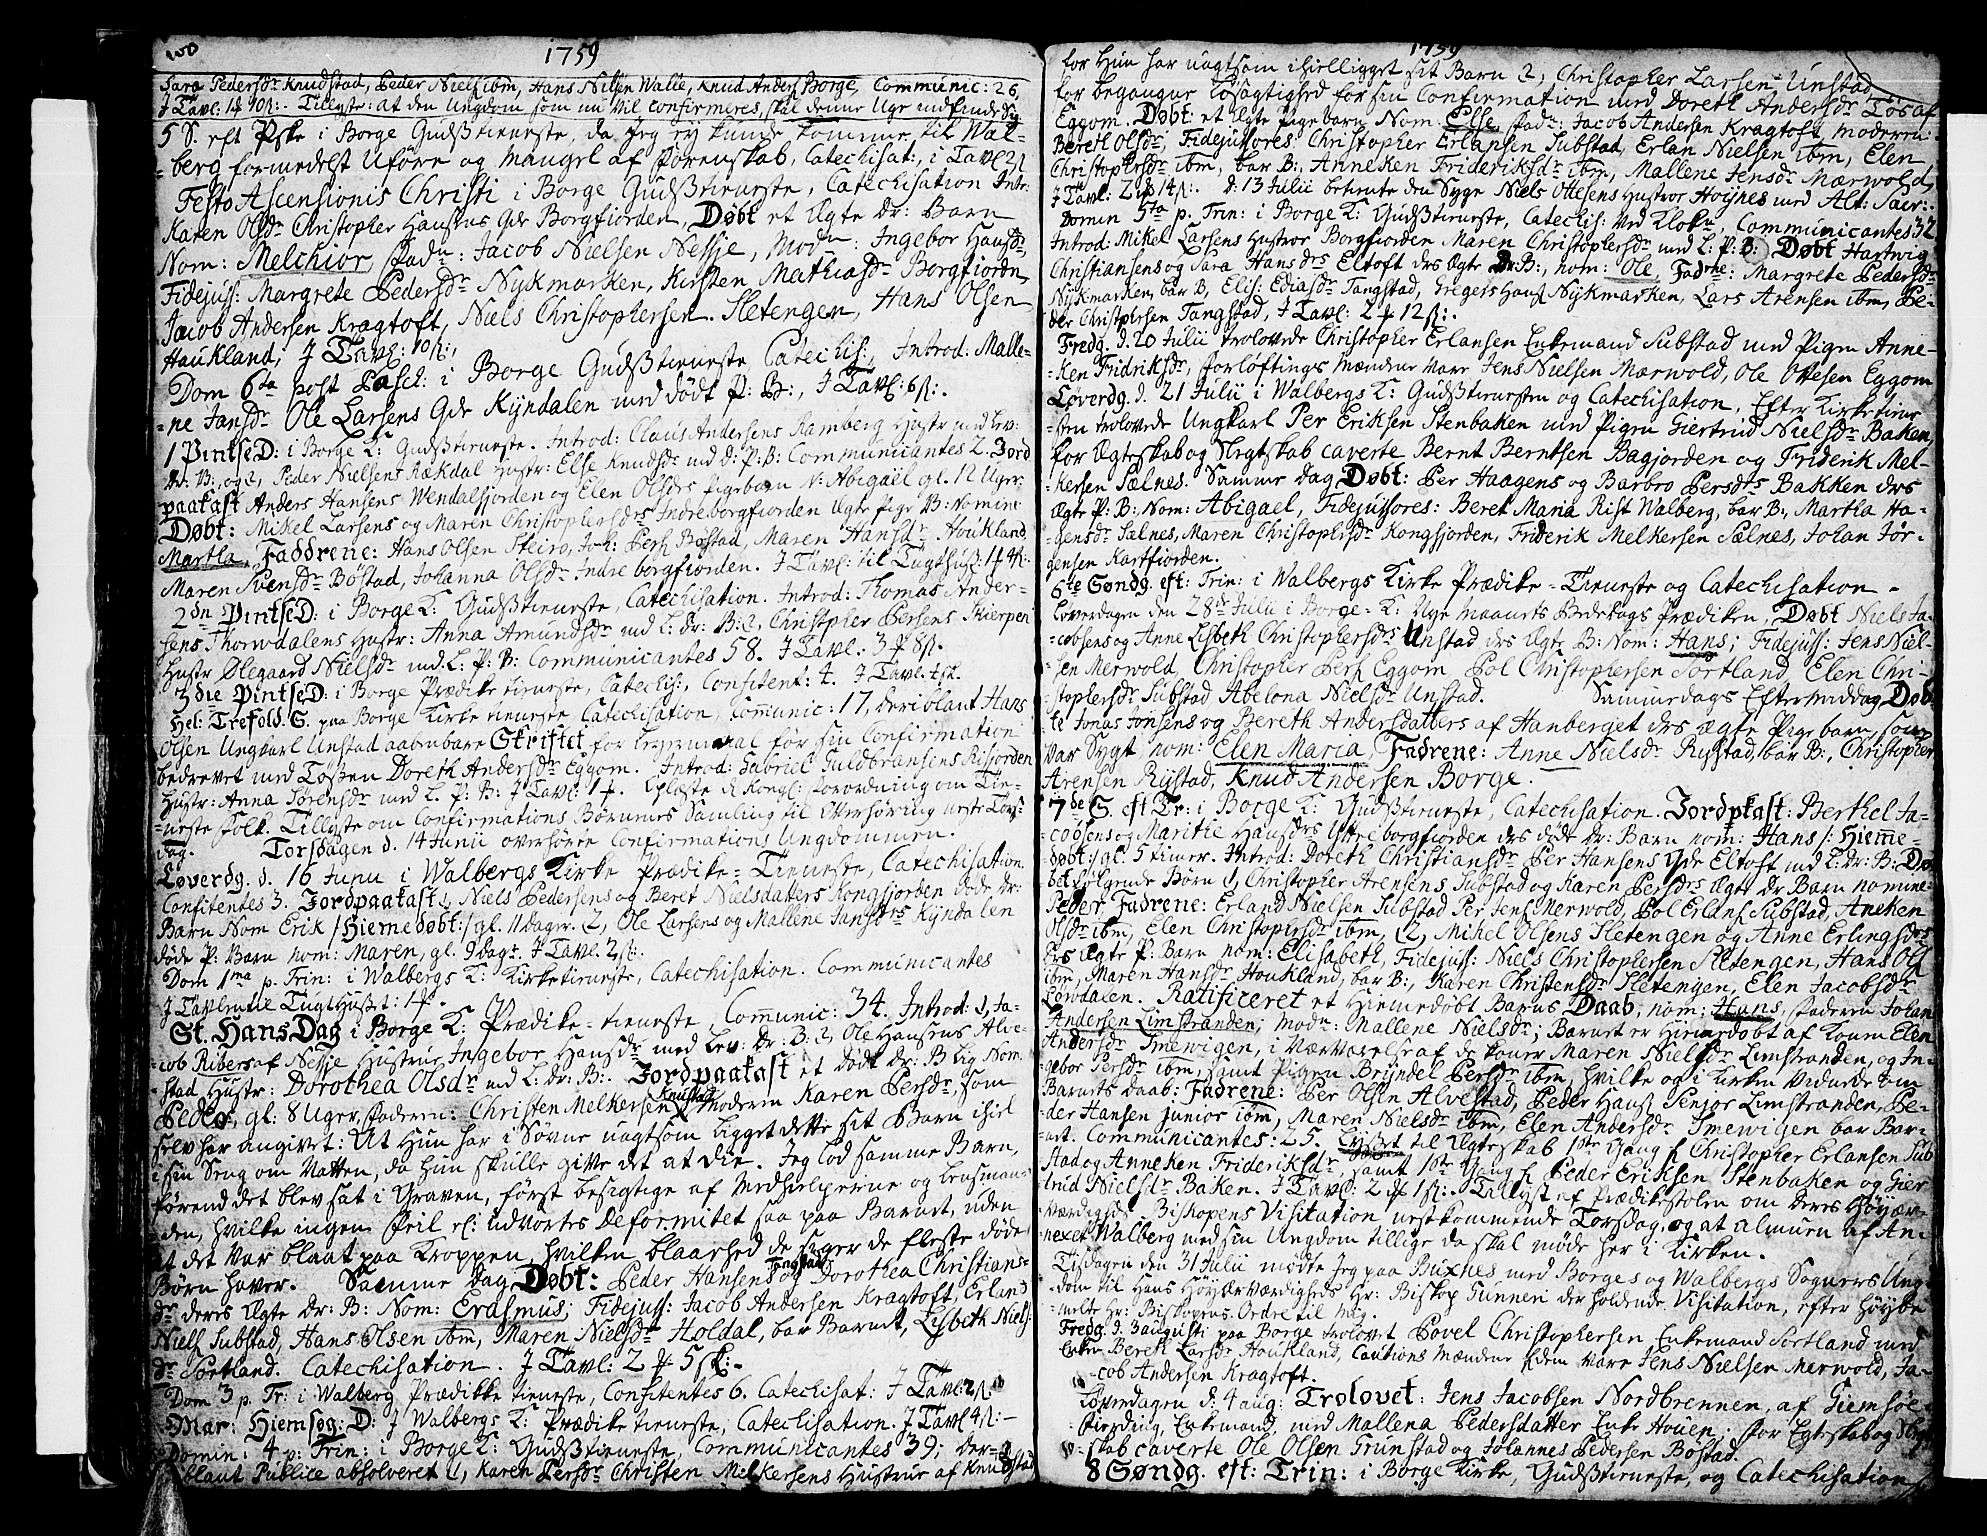 100
1759
Sara Pedersdr Knudstad, Peder Niels ibm, Hans Nilsen Walle, Knud Anders Borge, Communic: 26,
J Tavl: 14 10ß:- Tillyste: at den Ungdom som nu vil confirmeres, skal denne Uge indfinde sig
5 S. eft Pske i Borge Gudßtieneste, da jeg ey kunde komme til Wal-
-berg formedelst Uføre og Mangel af Førenskab, Catechisat:, i Tavl 2ß
Festo Ascensionis Christi i Borge Gudßtieneste, Catechisation Intr:
Karen Olsdr Christopher Hansens Qde Borgfiorden, Døbt et Ægte Dr: Barn
Nom: Melchior, Fadn: Jacob Nielsen Nesje, Modn: Ingebor Hansdr
Fidejuss: Margrete Pedersdr Nykmarken, Kirsten Mathiasdr Borgfiordn
Jacob Andersen Kragtoft, Niels Christophersen Sletengen, Hans Olsen
Haukland, J Tavl: 10ß:,
Dom 6ta post Pasch: i Borge Gudßtieneste Catechis:, Introd: Malle-
-ne Jansdr Ole Larsens Qde Kyndalen med dødt P: B:, J Tavl: 6ß:.
1 PintseD: i Borge K: Gudßtieneste. Introd: Claus Andersens Ramberg Hustr med lev:
dr: B:, og 2, Peder Nielsens Jækdal Hustr: Else Knudsdr md d: P: B: Communicantes 2. Jord
paakast Anders Hansens Wendalfjorden og Elen Olsdrs Pigebarn N: Abigaël gl. 12 Uger.
Døbt: Mikel Larsens og Maren Christophersdrs Indreborgfiorden Ægte Pige B: Nomine
Martha, Faddrene: Hans Olsen Steiro, Joh: Pers Bøstad, Maren Hansdr Houkland
Maren Svensdr Bøstad, Johanna Olsdr Indre borgfiorden. J Tavl: til Tugthuß: 1 4ß:
2dn PintseD: i Borge K: Gudßtieneste, Catechisation. Introd: Thomas Ander-
sens Thorwdalens Hustr: Anna Amundsdr md L: dr: B: 2, Christopher Persens Skierpen
Hustr Ølegaard Nielsdr md. L. P: B: Communicantes 58. J Tavl: 3 8ß.
3die PintseD: i Borge Prædike tieneste, Catechis:, Confitent: 4. J Tavl: 4sk.
Hel: Trefold. S. paa Borge Kirke tieneste, Catechisation, Communic: 17, deriblant Hans
Olsen Ungkarl Unstad aabenbare Skriftet for Leyermaal før sin Confirmation
bedrevet med Tøßen Doreth Andersdr Eggom. Introd: Gabriel Guldbransens Risjorden
Hustr: Anna Sørensdr med L. P: B: J Tavl: 1. Oplæste d Kongl: forordning om Tie-
-neste Folk. Tillyste om Confirmations Børnenes Samling til Overhøring neste Tors-
dag. Torsdagen d. 14 Junii overhørte Confirmations Ungdommen.
Løverdg. d. 16 Junii i Walbergs Kirke Prædike-Tieneste, Catechisation
Confitentes 3. Jordpaakast 1, Niels Pedersens og Beret Nielsdatters Kongsjorden døde Dr:
Barn Nom Erik /Hiemedøbt:/ gl. 11 dager. (2, Ole Larsens og Mallene Jansdrs Kyndalen
døde P: Barn nom: Maren, gl. 9 Dagr. J Tavl: 2ß:
Dom 1ma p. Trin: i Walbergs K: Kirketieneste, Catechisation. Communicantes
J Tavlen til Tugthuset: 14.
St. Hans Dag i Borge K: Prædike-tieneste, Communic: 34. Introd: 1, Ja-
-cob Ribers af Nesje Hustrue Ingebor Hansdr med Lev: Dr: B: 2, Ole Hansens Alve-
stad Hustr: Dorothea Olsdr md L: dr: B:. Jordpaakast et dødt Dr: B lig Nom
Peder, gl: 8 Uger, Faderen: Christen Melkersen Knudstad, Moderen Karen Persdr, som
selv har angivet: At Hun har i Søvne uagtsom ligget dette sit Barn ihiel
i sin Seng om Natten, da hun skulle givet det at die. Jeg lod samme Barn,
førend det blev sat i Graven, først besigtige af Medhielperne og Lensman-
-den, hvilke ingen Feil el: udvortes Deformitet saae paa Barnet, uden
at det var blaat paa Kroppen, hvilken blaahed de siger de fleste døde
Børn haver. Samme Dag Døbt: Peder Hansens Tangstad og Dorothea Christians-
dr deres Ægte Dr: B: Nom: Erasmus; Fidejuss: Jacob Andersen Kragtoft, Erland
Niels Substad, Hans Olsen ibm, Maren Nielsdr Holdal, bar Barnet, Lisbeth Niels-
dr Sortland. Catechisation. J Tavl: 2 5ß:-
Dom 3 p. Tr: i Walberg Prædikke tieneste, Confitentes 6. Catechisat: J Tavl: 2ß
Mar: Hiemsøg: D: J Walbergs K: Prædike tieneste, Catechisation. J Tavl 4ß:-
Domin: 4 p: Trin: i Borge K: Gudßtieneste, Communicantes 39; der-
blant Publice absolveret 1, Karen Persdr Christen Melkersens Hustrue af Knudstad
1759
for Hun har uagtsom ihielligget sit Barn 2, Christopher Larsen Unstad
for begangne Løsagtighed før sin Confirmation med Doreth Andersdr Tøs af
Eggom. Døbt et Ægte Pigebarn Nom Else, Fadr: Jacob Andersen Kragtoft, Moderen
Bereth Olsdr, Fidejussores: Christopher Erlansen Substad, Erlan Nielsen ibm, Elen
Christophersdr ibm, bar B:, Anneken Frideriksdr ibm, Mallene Jensdr Mærwold,
J Tavl: 2 14ß:. d: 13 Julii betiente den Syge Niels Ottesens Hustroe Høynes med Alt: Sacr:.
Domin 5ta p. Trin: i Borge K: Gudßtieneste, Catechis: ved Klokn, Communicantes 32.
Introd: Mikel Larsens Hustroe Borgfiorden Maren Christophersdr med L: P: B: Døbt Hartwig
Christiansens og Sara Hansdrs Eltoft drs Ægte Dr B:, nom: Ole, Fadrne: Margrete Pedersdr
Nykmarken, bar B, Elis: Ediasdr Tangstad, Gregers Hans Nykmarken, Lars Arensen ibm, Pe-
der Christphersen Tangstad, J Tavl: 2 12ß:.
Fredg. d. 20 Julii trolovede Christopher Erlansen Enkemand Substad med Pigen Anne-
-ken Fridriksdr, forløftings Mændene vare Jens Nielsen Mærwold, Ole Ottesen Eggom
Løverdg. d. 21 Julii i Walbergs K: Gudßtienesten og Catechisation, Efter Kirketiene-
-sten trolovede Ungkarl Per Eriksen Stenbaken med Pigen Giertrud Nielsdr Baken,
for Ægteskab og Slegtskab caverte Bernt Berntsen Bagjorden og Friderik Mel-
-kersen Sælnes. Samme Dag Døbt: Per Haagens og Barbro Persdrs Bakken drs
Ægte P: B: Nom: Abigael, Fidejussores: Beret Maria Rist Walberg, bar B:, Martha Ha-
-gensdr Sælnes, Maren Christophersdr Kongsjorden, Friderik Melkersen Sælnes, Johan Jør-
gensen Kartfiorden.
6te Søndg. eft: Trin: i Walbergs Kirke Prædike-Tieneste og Catechisation.
Løverdagen den 28d Julii i Borge-K: Nye Maanets Bededags Prædiken, Døbt Niels Ja-
-cobsens og Anne Lisbeth Christophersdrs Unstad drs Ægte B: Nom: Hans; Fidejuss: Jens Niel-
sen Merwold, Christopher Pers Eggom Pol Christophersen Sortland, Elen Chri-
stophersdr Substad Abelona Nielsdr Unstad. Sammedags Eftermiddag Døb-
te Jonas Jonsens og Bereth Andersdatters af Hanberget drs ægte Pigebarn, som
var Sygt nom: Elen Maria, Fadrene: Anne Nielsdr Rystad, bar B:, Christopher
Arensen Rystad, Knud Andersen Borge.
7de S. eft Tr: i Borge K: Gudßtieneste, Catechisation. Jordpkast: Berthel Ja-
cobsens og Marithe Hansdrs Ystreborgfiorden drs døde Dr: Barn nom: Hans /: Hieme-
døbt:/ gl. 5 timer. Introd: Doreth Christiansdr Per Hansens Qde Eltoft med L: dr: B: Dø-
bet følgende Børn 1, Christopher Arensens Substad og Karen Persdrs Ægte dr Barn nomine
Peder, Fadrene: Erland Nielsen Substad Per Jens Merwold, Pol Erlans Substad, Aneken
Olsdr ibm, Elen Christophersdr ibm, (2, Mikel Olsens Sletengen og Anne Erlingsdrs
drs Ægte P: Barn nom: Elisabeth, Fidejuss: Niels Christophersen Sletengen, Hans Ols
ibm, Maren Hansdr Houkland, bar B:, Karen Christensdr Sletengen, Elen Jacobsdr
Lewdalen. Ratificeret et Hiemedøbt Barns Daab, nom: Hans, Faderen Johan
Andersen Limstranden, Modn: Mallene Nielsdr; Barnet er Hiemedøbt af Konen Elen
Andersdr Smewigen, i Nærværelse af de koner Maren Nielsdr Limstranden, og In-
gebor Persdr ibm, samt Pigen Bryndel Persdr ibm, hvilke og i Kirken vidnede om
Barnets daab: Fadrene: Per Olsen Alvestad, Peder Hans Senior Limstranden, Pe-
der Hansen junior ibm, Maren Nielsdr ibm, Elen Andersdr Smewigen bar Bar-
net. Communicantes: 25. Lyset til Ægteskab 1ste Gang f Christopher Erlansen Sub
stad og Anneken Frideriksdr, samt 1ste Gang f Peder Eriksen Stenbaken og Gier
trud Nielsdr Baken. J Tavl: 2 1ß:. Tillyst af Prædikestolen om Deres Høyær-
værdigheds Biskopens Visitation nestkommende Torsdag, og at almuen af An-
nexet Walberg med sin Ungdom tillige da skal møde her i Kirken.
Tisdagen den 31 Julii mødte Jeg paa Buxnes med Borges og Walbergs Sogners Ung
dom til Hans Høyærværdigheds Hr: Biskop Gunneri der holdende Visitation, efter høybe
-melte Hr: Biskopens Ordre til mig.
Fredg. d. 3 augusti paa Borge trolovet Povel Christophersen Enkemand Sortland med
Enken Bereth Larsdr Houkland, Cautions Mændene f dem vare Jens Nielsen Merwold, Ja-
-cob Andersen Kragtoft.
Løverdagen d: 4 aug: Trolovet: Jens Jacobsen Nordbrennen, af Giemsøe
fierding, Enkemand, med Mallena Pedersdatter Enke Houen; for Egteskab og Slegt-
-skab caverte Ole Olsen Grunstad og Johannes Pedersen Bøstad.
8 Søndg. eft: Trin: i Borge Kirke, Gudßtieneste, og Catechisation